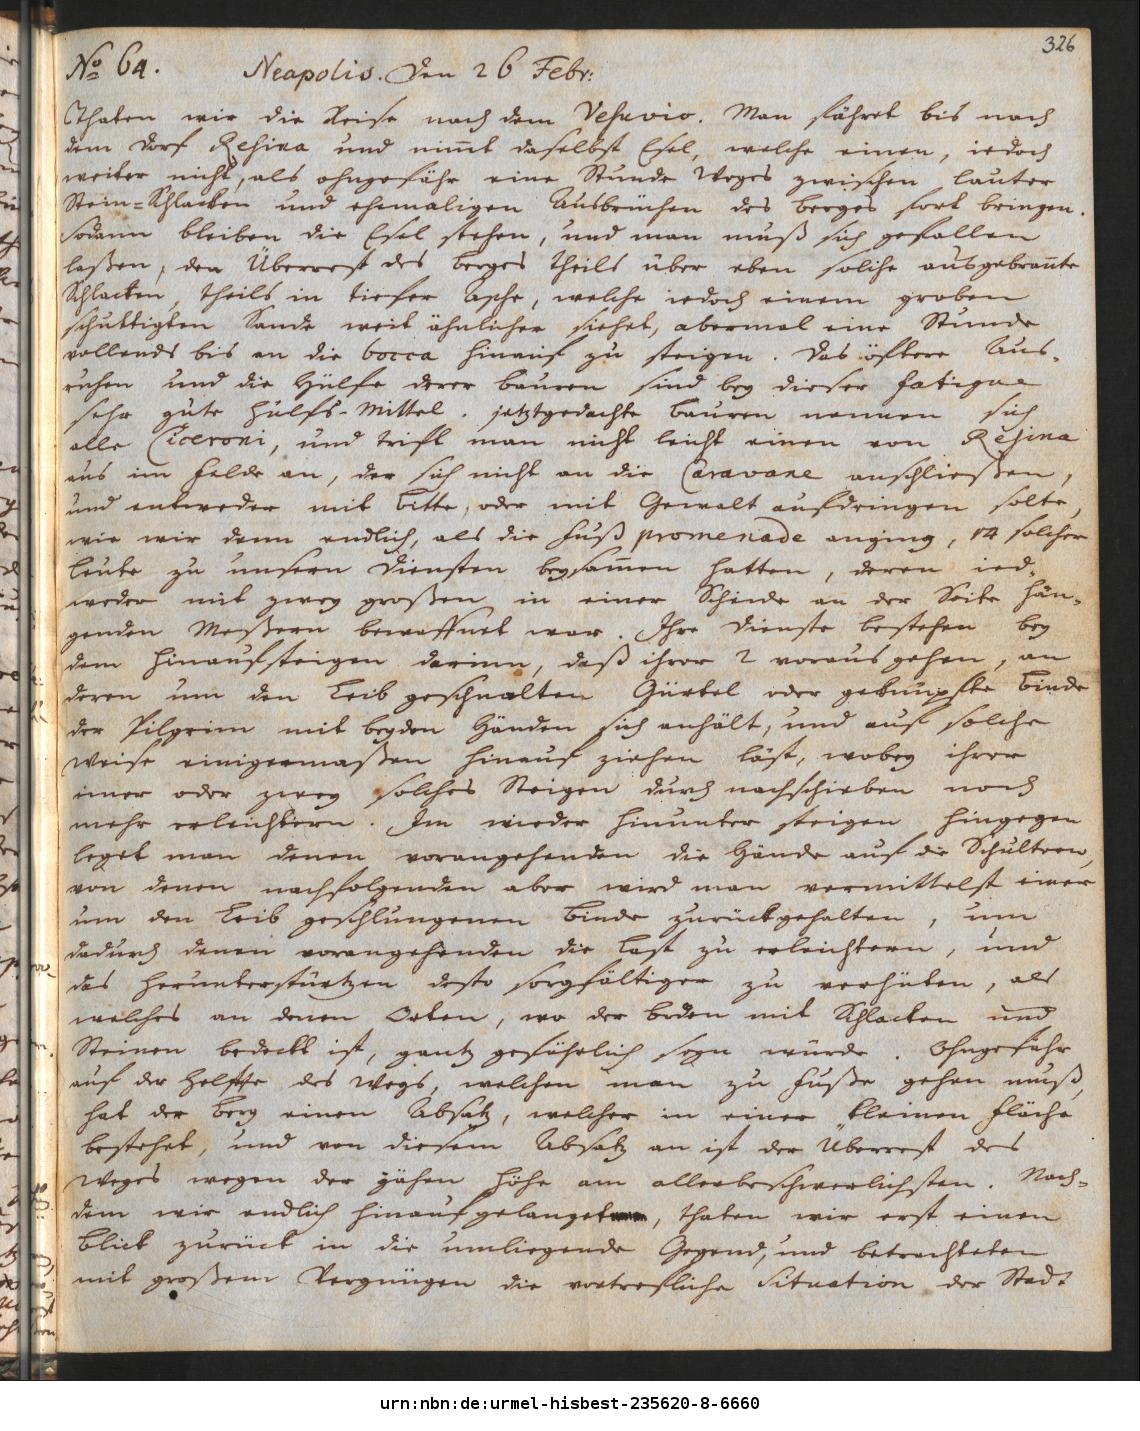 326
No 64. Neapolis. Den 26 Febr:
Thaten wir die Reise nach dem Vesuvio. Man fähret bis nach
dem Dorf Resina und nim̅t daselbst Esel, welche einen, iedoch
weiter nicht, als ohngefähr eine Stunde Weges zwischen lauter
Stein=Schlacken und ehemaligen Ausbrüchen des Berges fort bringen.
Sodann bleiben die Esel stehen, und man muß sich gefallen
laßen, den Überrest des Berges theils über eben solche ausgebran̅te
Schlacken, theils in tiefer Asche, welche iedoch einem groben
schuttigten Sande weit ähnlicher siehet, abermal eine Stunde
vollends bis an die bocca hinauf zu steigen. Das öftere Aus-
ruhen und die Hülfe derer Bauren sind bey dieser fatigue
sehr gute Hülfs-Mittel. jetztgedachte Bauren nennen sich
alle Ciceroni, und trift man nicht leicht einen von Resina
aus im Felde an, der sich nicht an die Caravane anschließen,
und entweder mit Bitte, oder mit Gewalt aufdringen solte,
wie wir denn endlich, als die Fuß promenade anging, 14 solcher
Leute zu unsern Diensten beysam̅en hatten, deren ied-
weder mit zwey großen in einer Scheide an der Seite hän-
genden Meßern bewaffnet war. Ihre Dienste bestehen bey
dem Hinaufsteigen darinn, daß ihrer 2 voraus gehen, an
deren um den Leib geschnalten Gürtel oder geknüpfte Binde
der Pilgrim mit beyden Händen sich anhält, und auf solche
Weise einigermaßen hinauf ziehen läst, wobey ihrer
einer oder zwey solches Steigen durch nachschieben noch
mehr erleichtern. Im wieder hinunter steigen hingegen
leget man denen vorangehenden die Hände auf die Schultern,
von denen nachfolgenden aber wird man vermittelst einer
um den Leib geschlungenen Binde zurückgehalten, um
dadurch denen vorangehenden die Last zu erleichtern, und
das Herunterstürtzen desto sorgfältiger zu verhüten, als
welches an denen Orten, wo der Boden mit Schlacken und
Steinen bedeckt ist, gantz gefährlich seyn würde. Ohngefähr
auf der Helffte des Wegs, welchen man zu Fuße gehen muß,
hat der Berg einen Absatz, welcher in einer kleinen Fläche
bestehet, und von diesem Absatz an ist der Überrest des
Weges wegen der gähen Höhe am allerbeschwerlichsten. Nach-
dem wir endlich hinauf gelanget, thaten wir erst einen
Blick zurück in die umliegende Gegend, und betrachteten
mit großem Vergnügen die vortrefliche Situation der Stadt
urn:nbn:de:urmel-hisbest-235620-8-6660